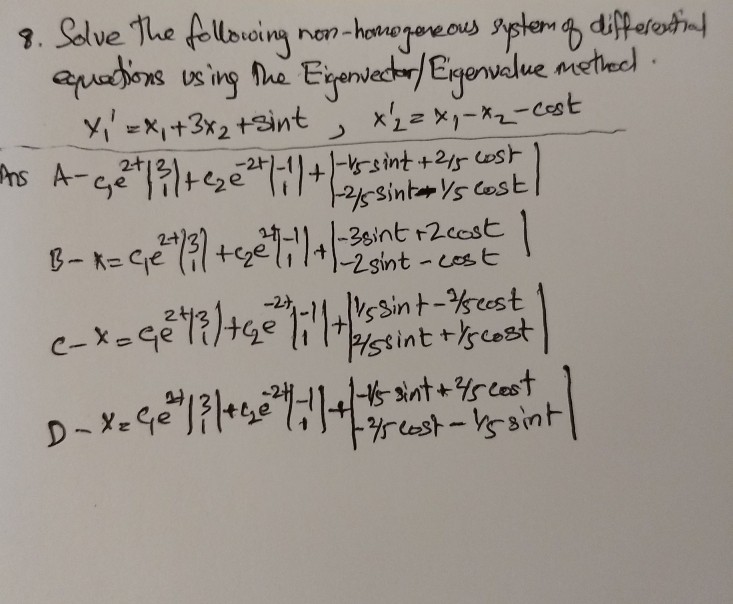 8. Solve the following non-homogeneous system of differential
equations using the Eigenvector/Eigenvalue method.
x₁' = x₁+3x₂+sint , x'₂ = x₁-x₂-cost
Ans A- c₁e^2t|3 1|+c₂e^-2t|-1 1|+|-1/5 sint + 2/5 cost -2/5 sint - 1/5 cost|
B- x= c₁e^2t|3 1|+c₂e^2t|-1 1|+|-3sint+2cost -2sint - cost|
C- x= c₁e^2t|3 1|+c₂e^-2t|-1 1|+|1/5 sint - 2/5 cost 2/5 sint + 1/5 cost|
D- x= c₁e^2t|3 1|+c₂e^-2t|-1 1|+|-1/5 sint + 2/5 cost -2/5 cost - 1/5 sint|